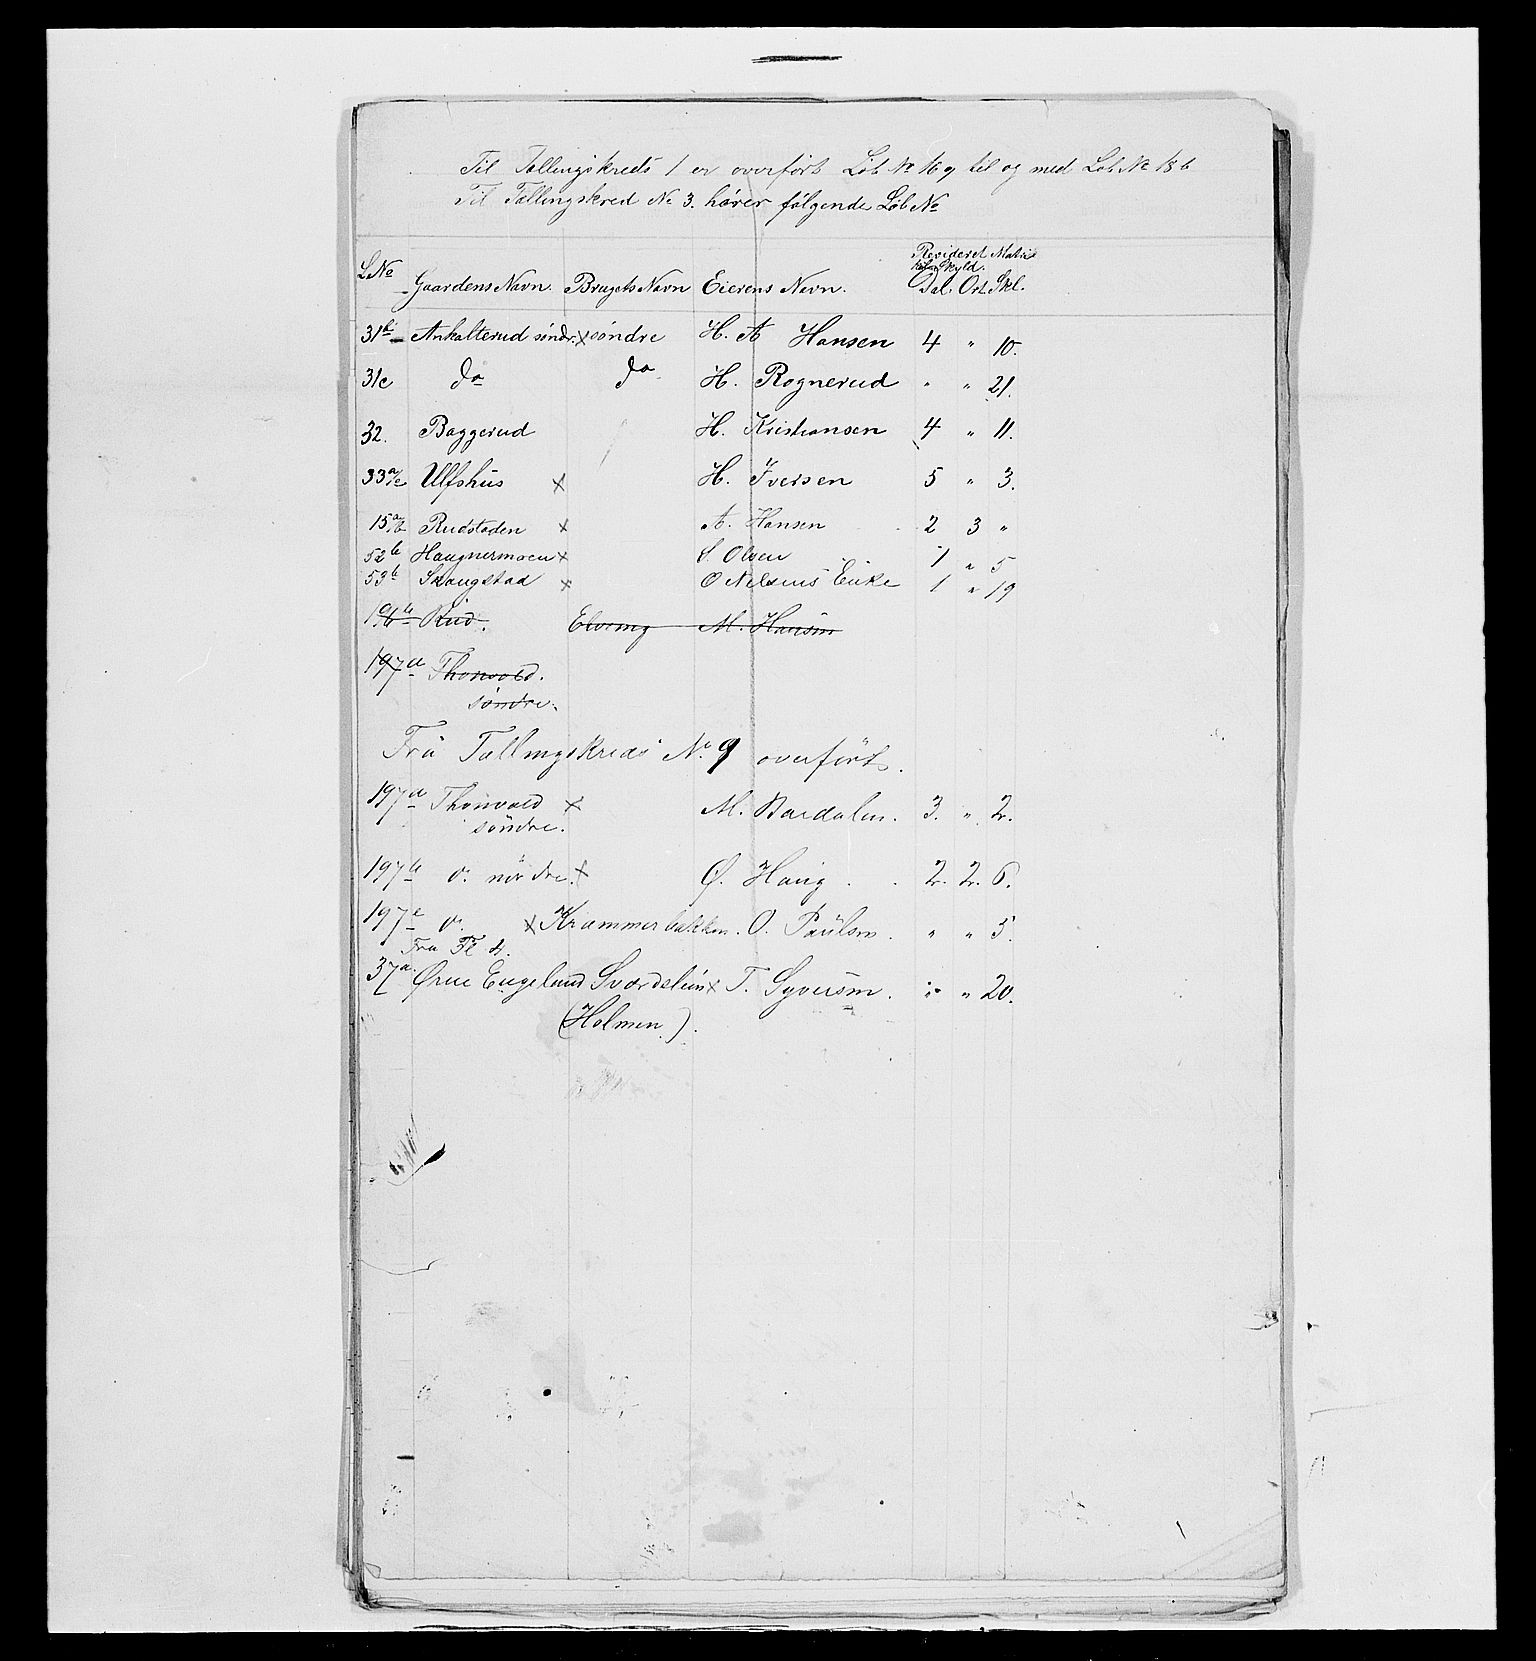 Til Tællingskreds 1 er overført Løb № 169 til og med Løb № 186
Til Tællingskred № 3. hører følgende Løb №
L№ Gaardens Navn. Brugets Navn Eierens Navn. Revideret Matrikelen Skyld. Dal. Ort. Skl.
31b Ankalterud søndr. x søndre H. A Hansen 4 " 10.
31c do do H. Rognerud " " 21.
32. Baggerud H. Kristiansen 4 " 11.
33a/c Ulfshus x H. Iversen 5 " 3.
15a/b Rudstaden x A. Hansen 2 3 "
52b Haugnermoen x S. Olsen 1 " 5
53b Skaugstad x O Nilsens Enke 1 " 19
196b Rud. Elveng M. Hansen
197a Thorvold. søndre.
Fra Tællingskreds No 9 overført.
197a Thorvold søndre. x M. Bardalen. 3. " 2.
197b do nordre. x Ø. Haug 2. 2. 6.
197c do x Krammerbakken. O. Paulsen. " " 5.
Fra Tk 4.
37a. Øvre Engelund Sværdslien x T. Syversen. " " 20.
(Holmen).